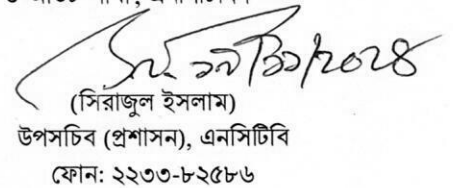 ১৯/১১/২০২৪
(সিরাজুল ইসলাম)
উপসচিব (প্রশাসন), এনসিটিবি
ফোন: ২২৩৩-৮২৫৮৬